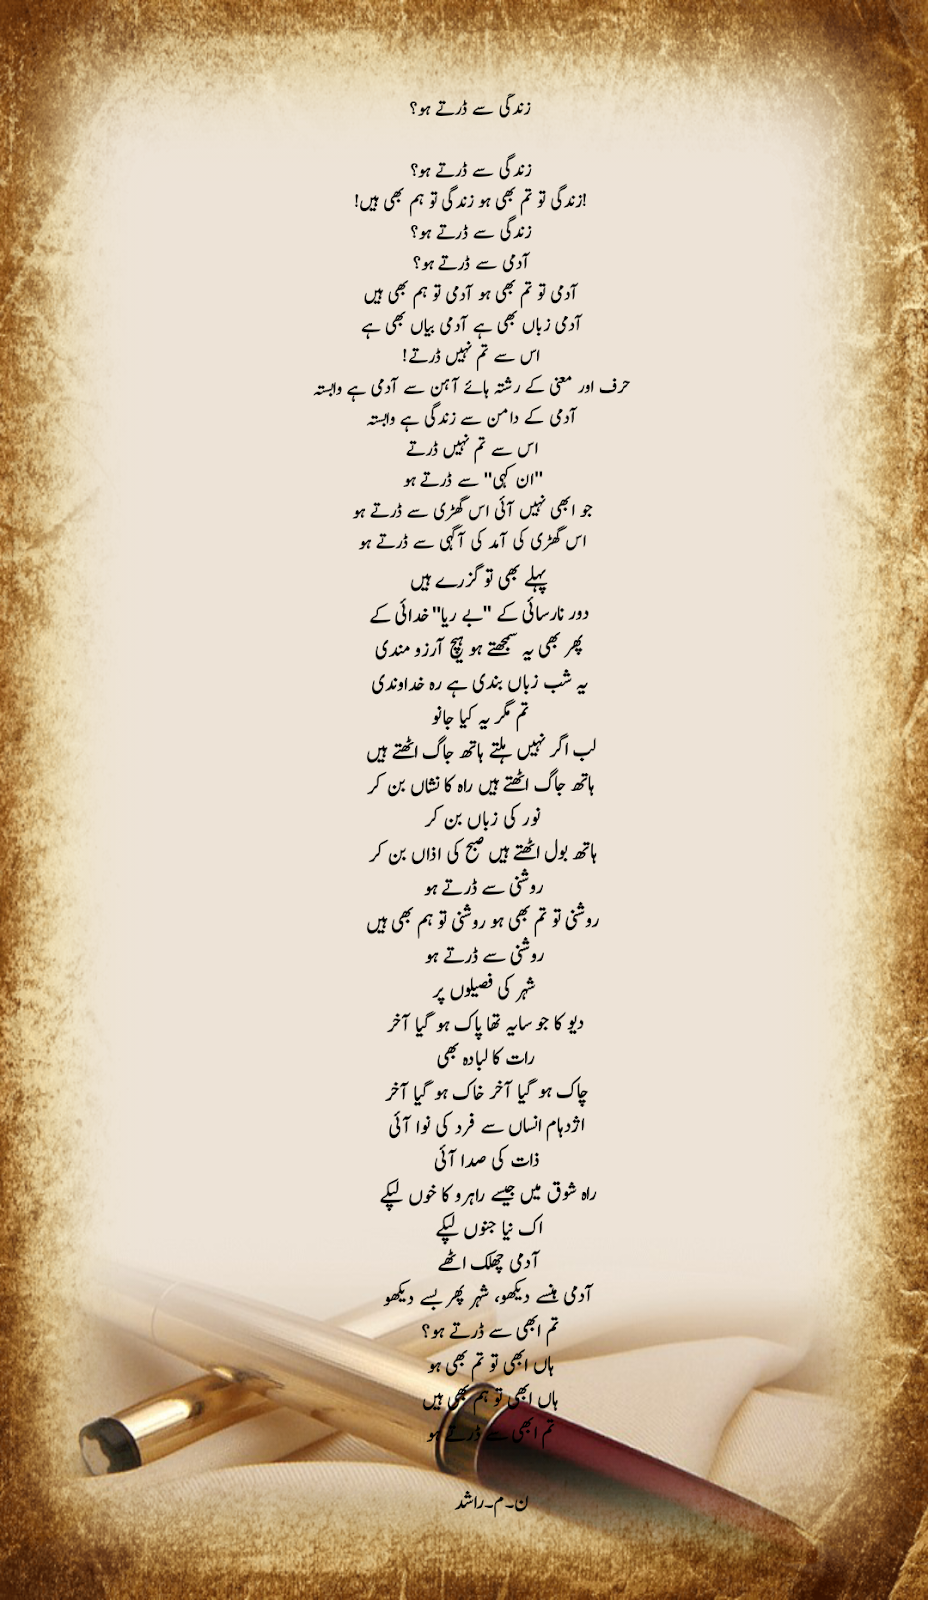 زندگی سے ڈرتے ہو؟
زندگی سے ڈرتے ہو؟
!زندگی تو تم بھی ہو زندگی تو ہم بھی ہیں!
زندگی سے ڈرتے ہو؟
آدمی سے ڈرتے ہو؟
آدمی تو تم بھی ہو آدمی تو ہم بھی ہیں
آدمی زباں بھی ہے آدمی بیاں بھی ہے
اس سے تم نہیں ڈرتے!
حرف اور معنی کے رشتہ ہائے آہن سے آدمی ہے وابستہ
آدمی کے دامن سے زندگی ہے وابستہ
اس سے تم نہیں ڈرتے
"ان کہی" سے ڈرتے ہو
جو ابھی نہیں آئی اس گھڑی سے ڈرتے ہو
اس گھڑی کی آمد کی آگہی سے ڈرتے ہو
پہلے بھی تو گزرے ہیں
دور نارسائی کے "بے ریا" خدائی کے
پھر بھی یہ سمجھتے ہو ہیچ آرزو مندی
یہ شب زباں بندی ہے رہ خداوندی
تم مگر یہ کیا جانو
لب اگر نہیں ہلتے ہاتھ جاگ اٹھتے ہیں
ہاتھ جاگ اٹھتے ہیں راہ کا نشاں بن کر
نور کی زباں بن کر
ہاتھ بول اٹھتے ہیں صبح کی اذاں بن کر
روشنی سے ڈرتے ہو
روشنی تو تم بھی ہو روشنی تو ہم بھی ہیں
روشنی سے ڈرتے ہو
شہر کی فصیلوں پر
دیو کا جو سایہ تھا پاک ہو گیا آخر
رات کا لبادہ بھی
چاک ہو گیا آخر خاک ہو گیا آخر
اژدہام انساں سے فرد کی نوا آئی
ذات کی صدا آئی
راہ شوق میں جیسے راہرو کا خوں لپکے
اک نیا جنوں لپکے
آدمی چھلک اٹھے
آدمی ہنسے دیکھو، شہر پھر بسے دیکھو
تم ابھی سے ڈرتے ہو؟
ہاں ابھی تو تم بھی ہو
ہاں ابھی تو ہم بھی ہیں
تم ابھی سے ڈرتے ہو
ن۔م۔راشد